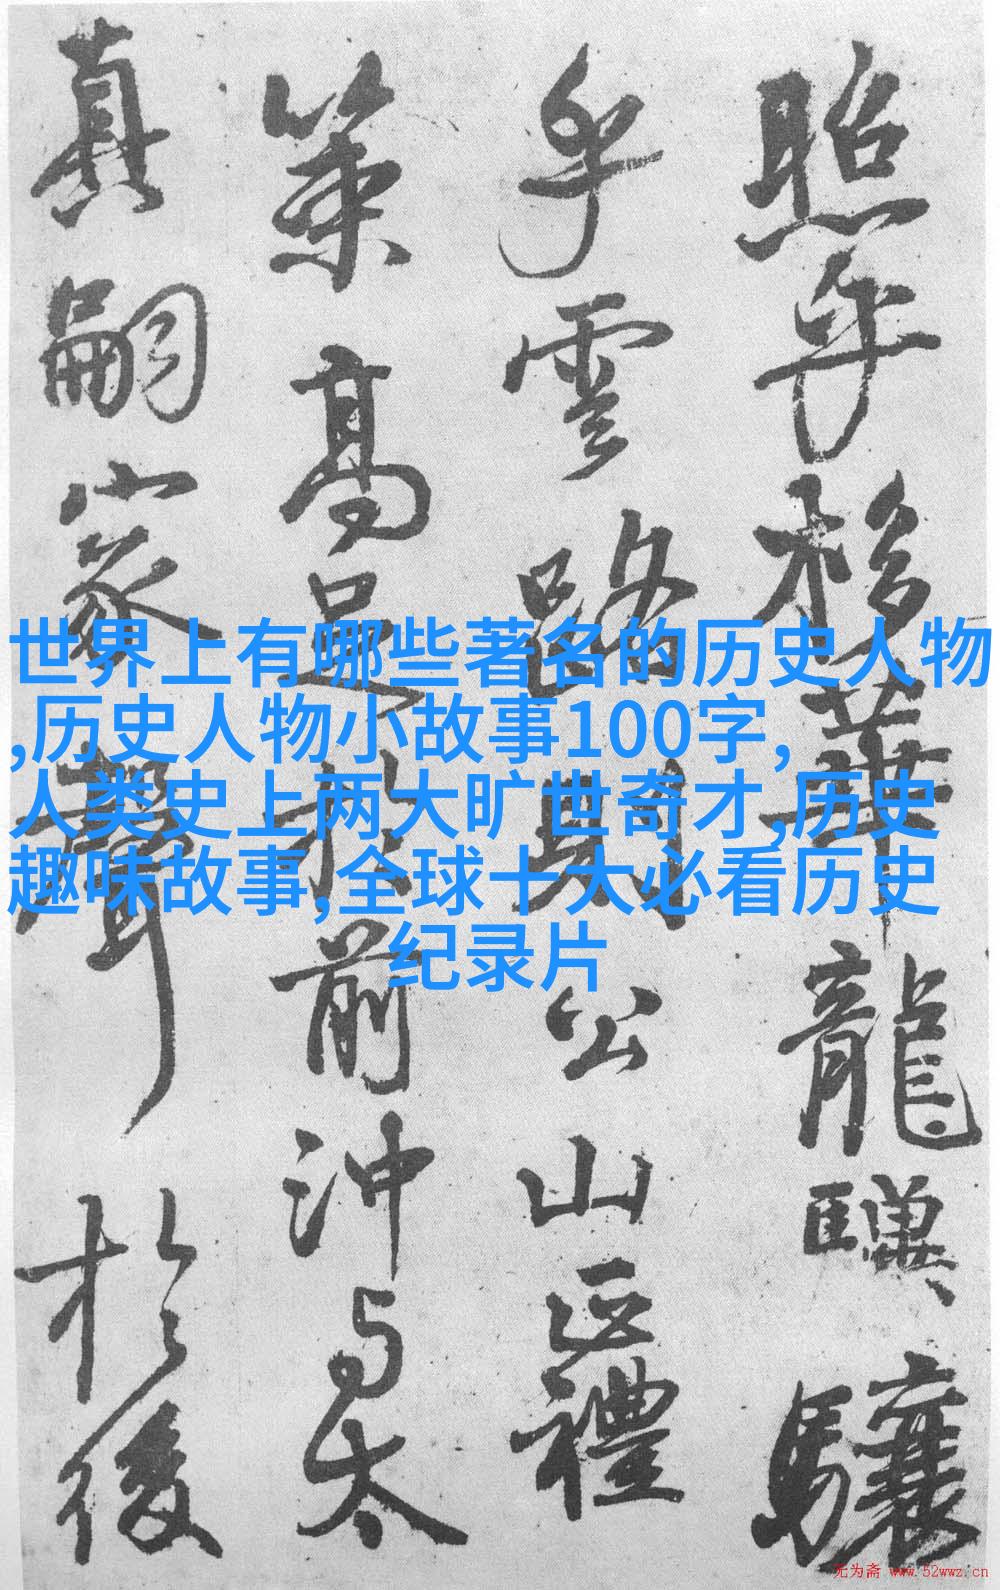 照乎移華龍驥驤
乎雲路則公山正禮
策高足於前沖与太
真嗣家聲於後
世界上有哪些著名的历史人物
,历史人物小故事100字,
人类史上两大旷世奇才,历史
趣味故事,全球十大必看历史
纪录片
无为斋 www.52wwz.cn